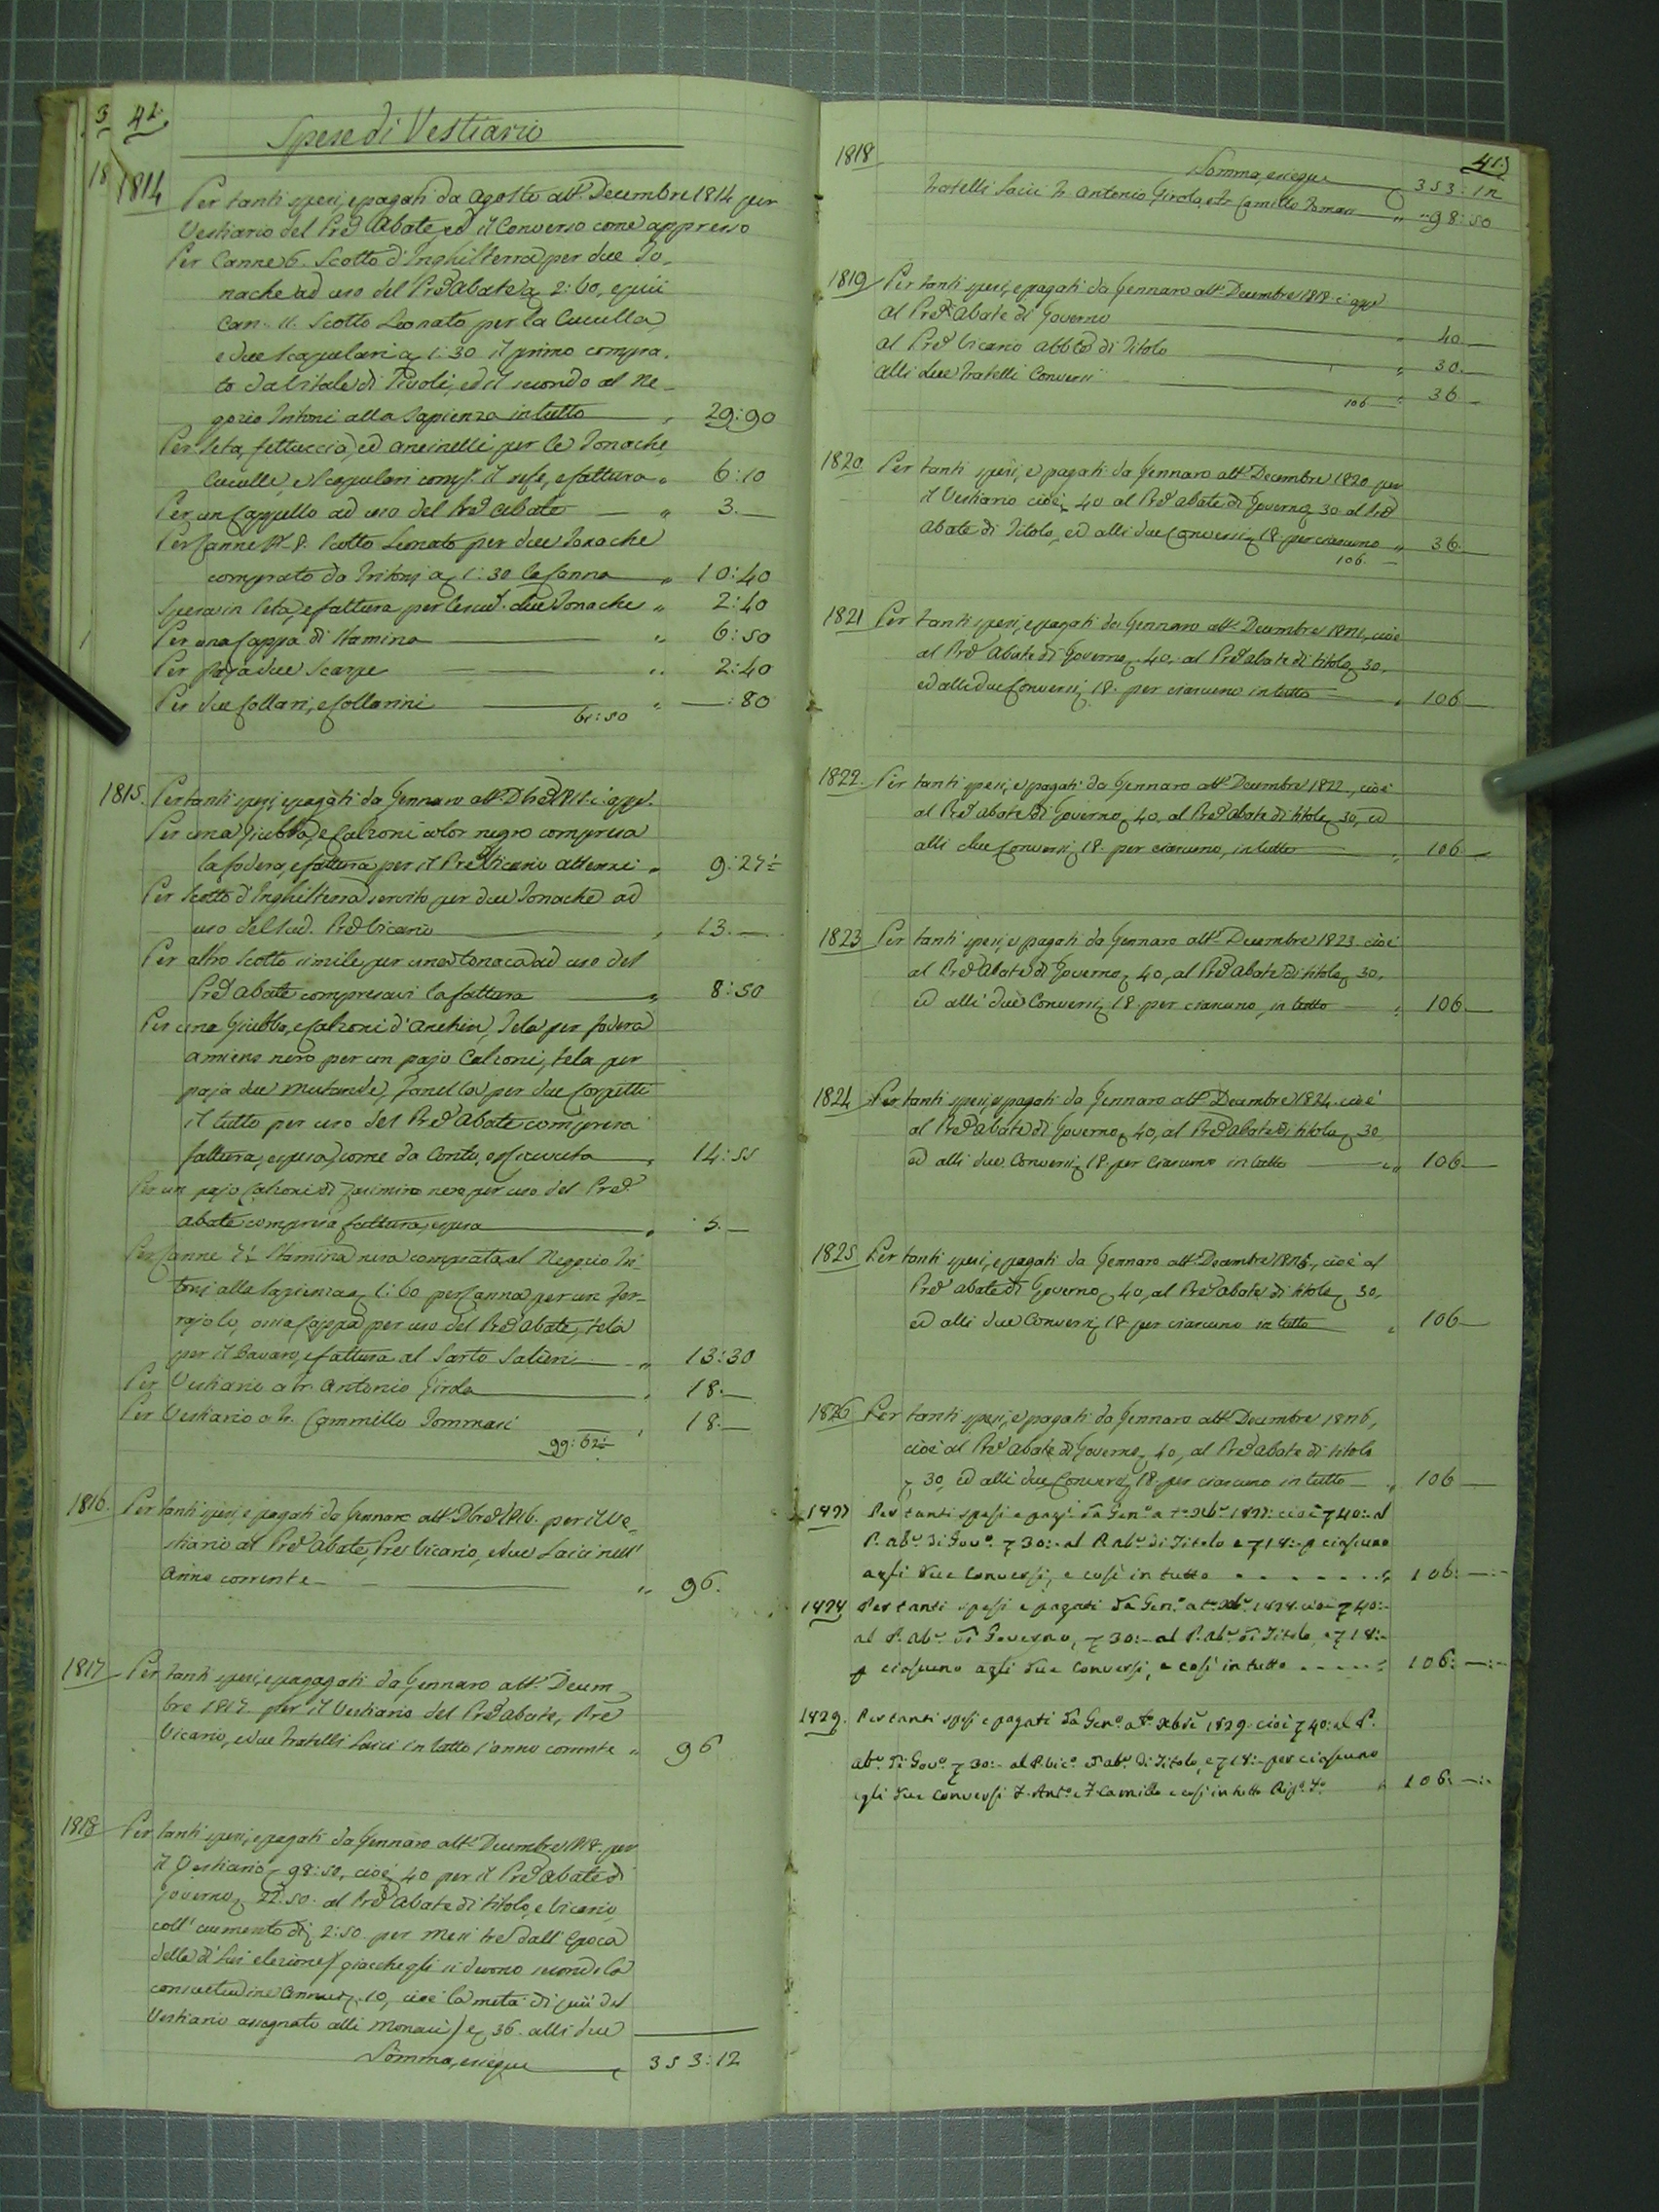 3
42.
Spese di Vestiario
18
1814 Per tanti spesi, e pagati da Agosto all. Decembre 1814 per
Vestiario del Pre Abate, ed il Converso come appresso
Per Canne 6. Scotto d'Inghilterra per due To-
nache ad uso del Pre Abate a 2:60, e più
Can. 11. Scotto Leonato per la Cuculla,
e due Scapulari a 1:30 il primo compra-
to da Vitale di Tivoli, ed il secondo al Ne-
gozio Tritoni alla Sapienza in tutto 29:90
Per Seta, fettuccia, ed ancinelli per le Tonache,
Cuculle, e Scapulari comp. il refe, e fattura 6:10
Per un Cappello ad uso del Pre Abate 3.—
Per Canne N. 8. Scotto Leonato per due Tonache
comprato da Tritoni a 1:30 la Canna 10:40
Spesa in Seta, e fattura per le sud. due Tonache 2:40
Per una Cappa di Stamina 6:50
Per paja due Scarpe 2:40
Per due Collari, e Collarini —:80
61:50
1815. Per tanti spesi, e pagati da Gennaro all. Dbre 1815. c. app.
Per una Giubba, e Calzoni color negro compresa
la fodera, e fattura per il Pre Vicario Attenzi 9:27½
Per Scotto d'Inghilterra servito per due Tonache ad
uso del sud. Pre Vicario 13.—
Per altro Scotto simile per una tonaca ad uso del
Pre Abate compresavi la fattura 8:50
Per una Giubba, e Calzoni d'Anchin, Tela per fodera
amiens nero per un pajo Calzoni, tela per
paja due Mutande, Fanella per due Corpetti
il tutto per uso del Pre Abate compresa
fattura, e spesa, come da Conto, e ricevuta 14:55
Per un pajo Calzoni di Casimiro nero per uso del Pre
Abate compresa fattura, e spesa 5.—
Per Canne 7½ Stamina nera comprata al Negozio Tri-
toni alla Sapienza a 1:60 per Canna per un Fer-
rajolo, ossia Cappa per uso del Pre Abate, tela
per il Bavaro, e fattura al Sarto Salieri 13:30
Per Vestiario a fr. Antonio Girola 18.—
Per Vestiario a fr. Cammillo Tommasi 18.—
99:62½
1816. Per tanti spesi, e pagati da Gennaro all. Dbre 1816. per il Ve-
stiario al Pre Abate, Pre Vicario, e due Laici nell'
Anno corrente 96.
1817 Per tanti spesi, e pagagati da Gennaro all. Decem-
bre 1817. per il Vestiario del Pre Abate, Pre
Vicario, e due Fratelli Laici in tutto l'anno corrente 96
1818 Per tanti spesi, e pagati da Gennaro all. Decembre 1818. per
il Vestiario 98:50, cioè 40 per il Pre Abate di
governo, 22:50. al Pre Abate di titolo, e Vicario,
coll'aumento di 2:50 per Mesi tre dall'Epoca
della di lui elezione / giacchè gli si devono secondo la
consuetudine Annui 10, cioè la metà di più del
Vestiario assegnato alli Monaci / e 36. alli due
Somma, e segue 353:12
41.
1818 Somma, e segue 353:12
Fratelli Laici Fr. Antonio Girola, e Fr. Camillo Tomasi 98:50
1819 Per tanti spesi, e pagati da Gennaro all. Decembre 1819. c. app.
Al Pre Abate di Governo 40.—
Al Pre Vicario Abbte di Titolo 30.—
Alli due Fratelli Conversi 36.—
106.—
1820 Per tanti spesi, e pagati da Gennaro all. Decembre 1820 per
il Vestiario cioè 40 al Pre Abate di Governo, 30 al Pre
Abate di Titolo, ed alli due Conversi 18. per ciascuno 36.—
106.—
1821 Per tanti spesi, e pagati da Gennaro all. Decembre 1821, cioè
al Pre Abate di Governo 40, al Pre Abate di titolo 30,
ed alli due Conversi 18. per ciascuno in tutto 106.—
1822. Per tanti spesi, e pagati da Gennaro all. Decembre 1822, cioè
al Pre Abate di Governo 40, al Pre Abate di titolo 30, ed
alli due Conversi 18. per ciascuno, in tutto 106.—
1823 Per tanti spesi, e pagati da Gennaro all. Decembre 1823. cioè
al Pre Abate di Governo 40, al Pre Abate di titolo 30,
ed alli due Conversi 18. per ciascuno, in tutto 106.—
1824 Per tanti spesi, e pagati da Gennaro all. Decembre 1824. cioè
al Pre Abate di Governo 40, al Pre Abate di titolo 30,
ed alli due Conversi 18. per ciascuno in tutto 106.—
1825 Per tanti spesi, e pagati da Gennaro all. Decembre 1825, cioè al
Pre Abate di Governo 40, al Pre Abate di titolo 30,
ed alli due Conversi 18 per ciascuno in tutto 106.—
1826 Per tanti spesi, e pagati da Gennaro all. Decembre 1826,
cioè al Pre Abate di Governo 40, al Pre Abate di titolo
30, ed alli due Conversi 18. per ciascuno in tutto 106.—
1827 Per tanti spesi e pag.i da Gen.o a t.o Xbr. 1827: cioè 40:- al
P. Ab.e di Gov.o 30:- al P. Ab.e di Titolo e 18:- p ciascuno
agli due Conversi, e così in tutto 106:—:-
1828 Per tanti spesi e pagati da Gen.o a t.o Xbr. 1828. cioè 40:-
al P. Ab.e di Governo, 30:- al P. Ab.e di Titolo, e 18:-
p ciascuno agli due Conversi, e così in tutto 106:—:-
1829. Per tanti spesi e pagati da Gen.o a t.o Xbre 1829. cioè 40: al P.
Ab.e di Gov.o 30:- al P. Vic.o ed Ab.e di Titolo, e 18:- per ciascuno
agli due Conversi F. Ant.o e F. Camillo e così in tutto 106:—:-